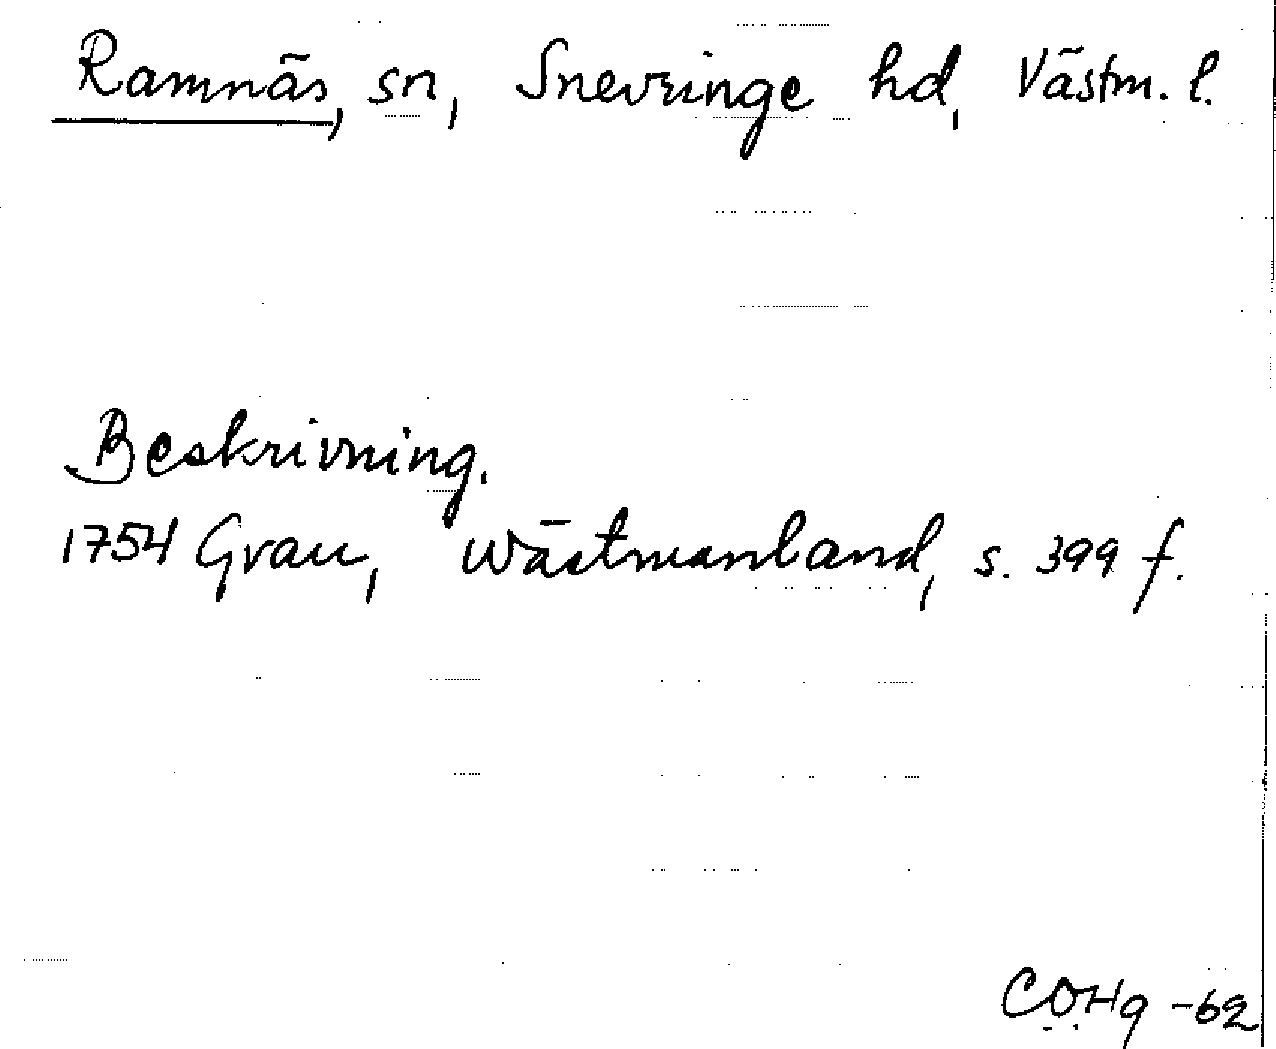 Ramnäs, sn, Snevringe hd, Västm. l.
Beskrivning.
1754 Grau, Wästmanland, s. 399 f.
COHg -62